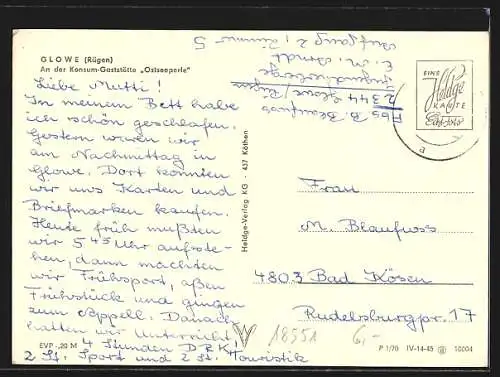 GLOWE (Rügen)
An der Konsum-Gaststätte „Ostseeperle"
Liebe Mutti!
In meinem Bett habe
ich schön geschlafen.
Gestern waren wir
am Nachmittag in
Glowe. Dort konnten
wir uns Karten und
Briefmarken kaufen.
Heute früh mußten
wir 5 45 Uhr aufste-
hen, dann machten
wir Frühsport, aßen
Frühstück und gingen
zum Appell. Danach
hatten wir Unterricht,
4 Stunden DRK,
2 St. Sport und 2 St. Touristik
EVP -,20 M
Heldge-Verlag KG · 437 Köthen
Abs. B. Blaufuss
2344 Glowe/Rügen
Jugendherberge
E. M. Arndt
Aufgang 2, Zimmer 5
EINE
Heldge
KARTE
Echt Foto
a
Frau
M. Blaufuss
4803 Bad Kösen
Rudelsburgpr. 17
18551
6,-
P 1/70 IV-14-45 10004